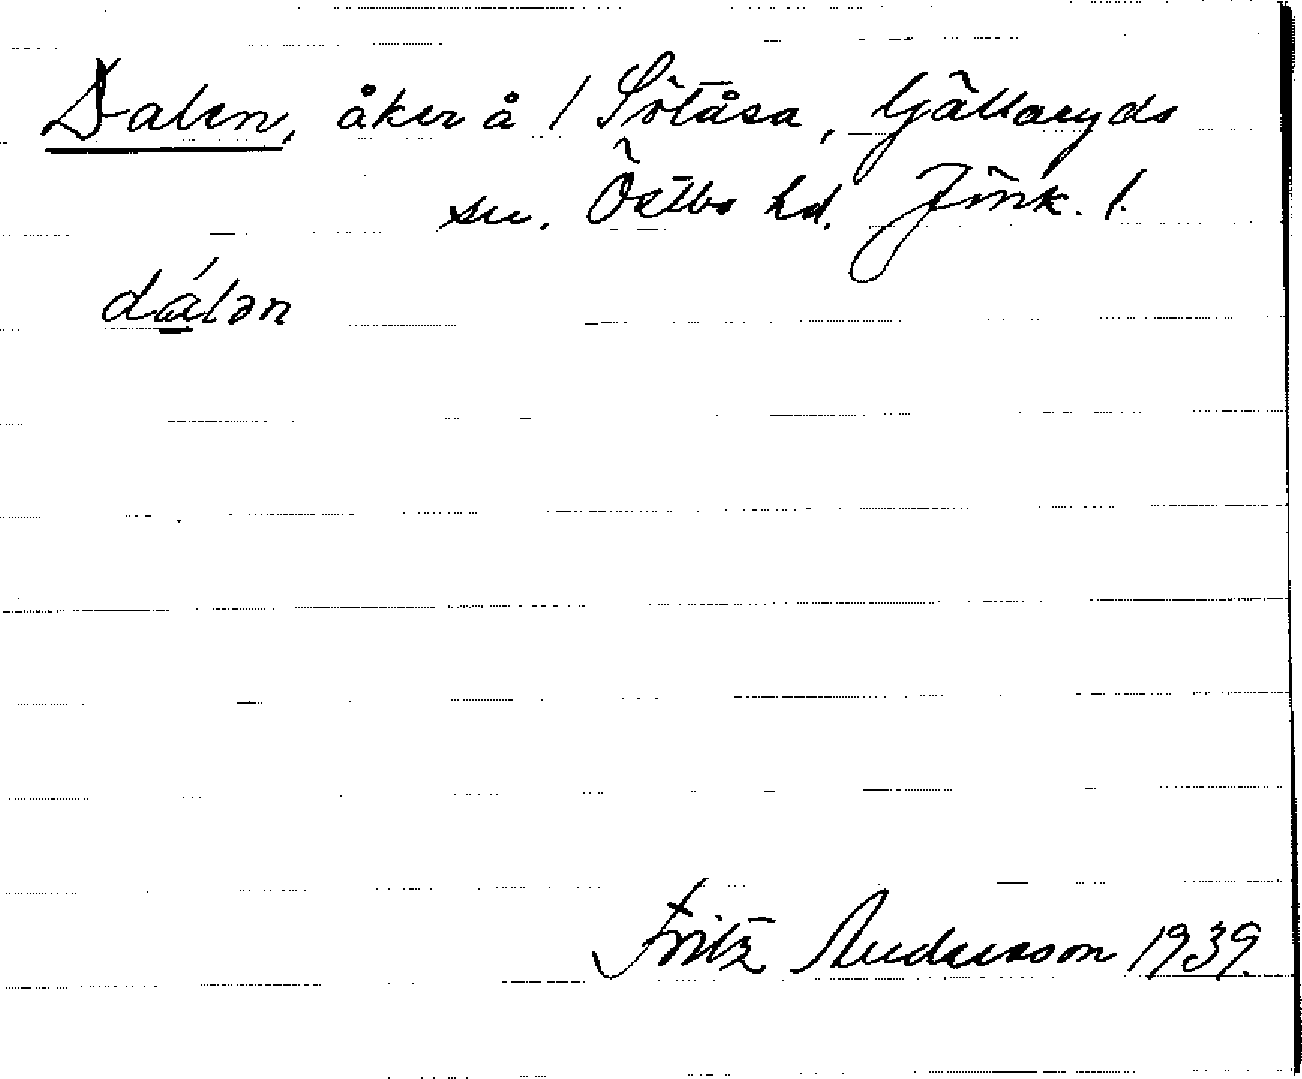 Dalen, åker å / Sötåsa, Gällaryds
sn. Östbo hd. Jönk. l.
dálən
Fritz Andersson 1939.